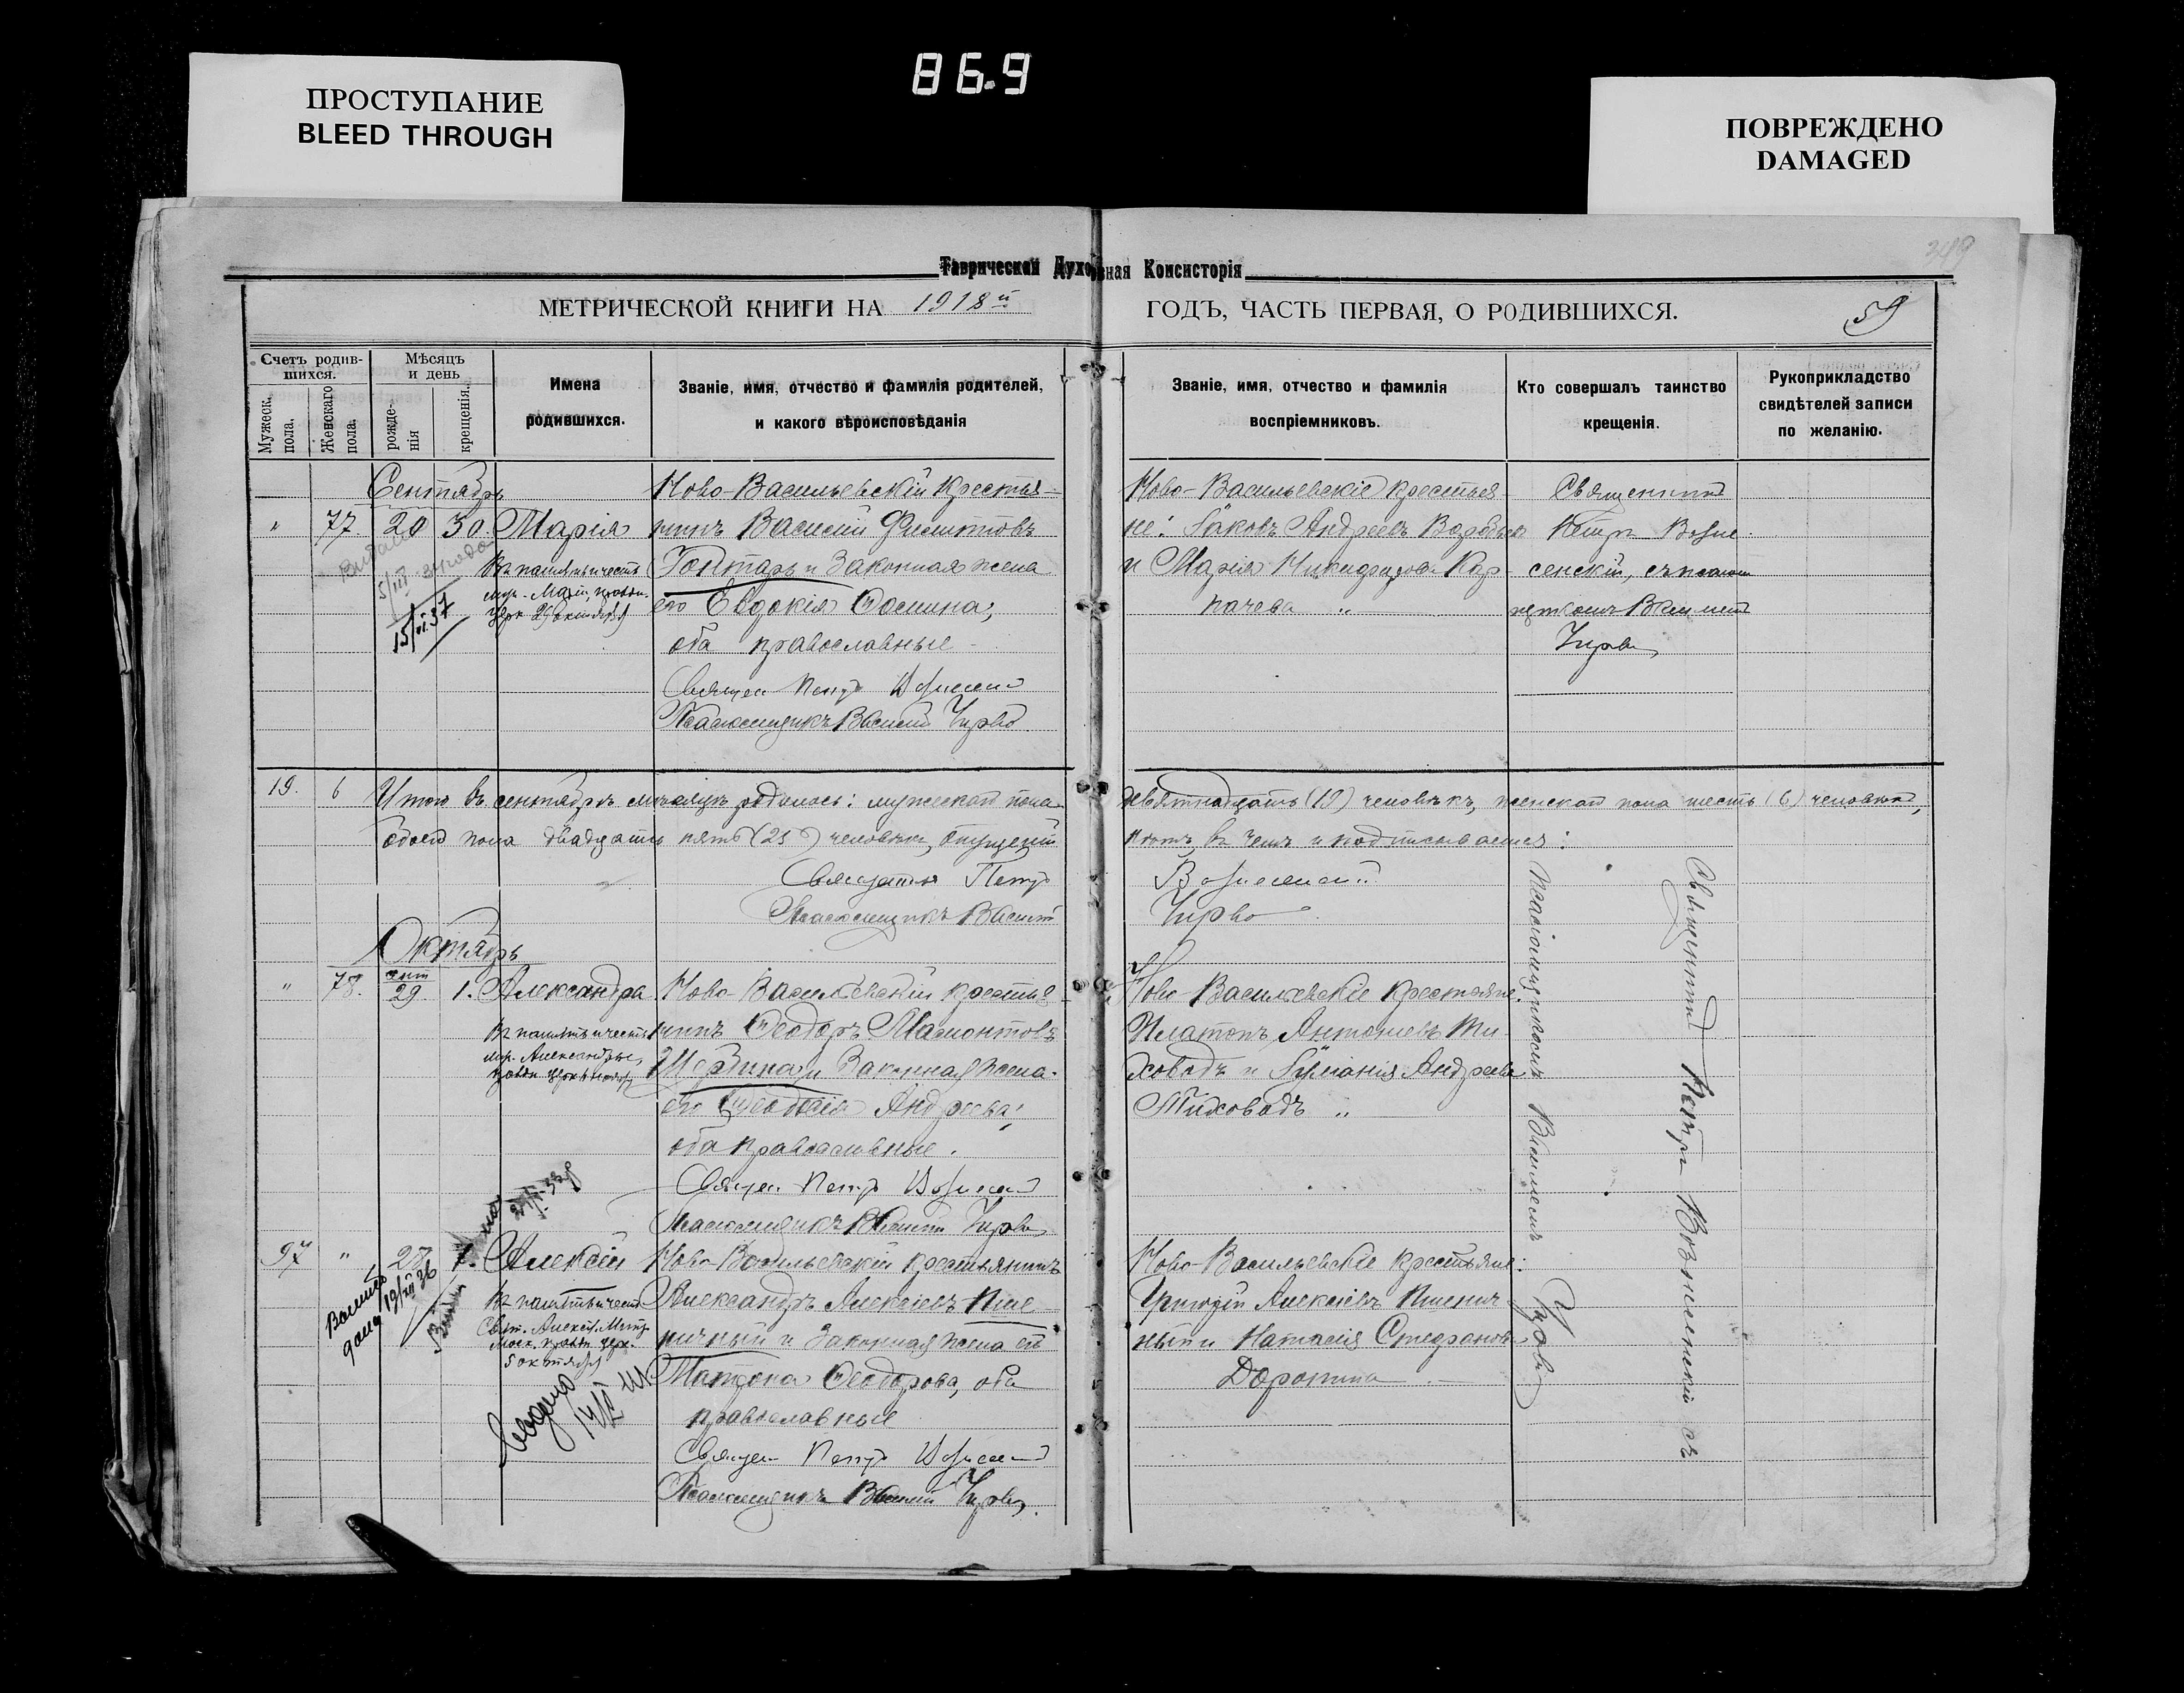 ПРОСТУПАНИЕ
BLEED THROUGH
86.9
ПОВРЕЖДЕНО
DAMAGED
349
Таврическая Духовная Консисторія
МЕТРИЧЕСКОЙ КНИГИ НА 1918й ГОДЪ, ЧАСТЬ ПЕРВАЯ, О РОДИВШИХСЯ.
59
Счетъ родив-
шихся.
Мужеск. пола.
Женскаго пола.
Мѣсяцъ
и день
рожде-
нія
крещенія.
Имена
родившихся.
Званіе, имя, отчество и фамилія родителей,
и какого вѣроисповѣданія
Званіе, имя, отчество и фамилія
воспріемниковъ.
Кто совершалъ таинство
крещенія.
Рукоприкладство
свидѣтелей записи
по желанію.
Сентябрь
" 77. 20 30. Марія
Ново-Васильевскій крестья-
нинъ Василій Филиповъ
Гонтарь и законная жена
его Евдокія Ѳомина,
оба православные
Священ Петръ Вознесенс
Псаломщикъ Василій Чирво
Въ память и честь
мр. Маріи, праздн.
15/VI.37
Ново-Васильевскіе крестья-
не: Іаковъ Андреевъ
и Марія Никифорова Кар-
пачева "
Священникъ
Петръ Возне-
сенскій, съ псалом-
щикомъ Василіемъ
Чирво
19. 6 Итого въ сентябрѣ мѣсяцѣ родилось: мужескаго пола девятнадцать (19) человѣкъ, женскаго пола шесть (6) человѣкъ,
обоего пола двадцать пять (25) человѣкъ, въ чемъ и подписываемся:
Священникъ Петръ Вознесенскій
Псаломщикъ Василій Чирво
Октябрь
" 78. сент 29. 1. Александра
Въ память и честь
мр. Александры,
Ново-Васильевскій крестья-
нинъ Ѳеодоръ Мамонтовъ
Щербина и законная жена
его Ѳеодосія Андреева,
оба православные.
Священ Петръ Вознесенс
Псаломщикъ Василій Чирво
Ново-Васильевскіе крестьяне:
Платонъ Антоніевъ Ти-
ховодъ и Іуліанія Андреева
Тиховодъ "
97 " 28 1. Алексій
Въ память и честь
Свят. Алексія Митр.
Моск. праздн. церк.
5 октября
Ново-Васильевскій крестьянинъ
Александръ Алексіевъ Пше-
ничный и законная жена его
Матрона Ѳеодорова, оба
православные
Священ Петръ Вознесенс
Псаломщикъ Василій Чирво
Ново-Васильевскіе крестьяне:
Григорій Алексіевъ Пшенич-
ный и Наталія Стефанова
Доронина
Священникъ Петръ Вознесенскій съ
псаломщикомъ Василіемъ Чирво